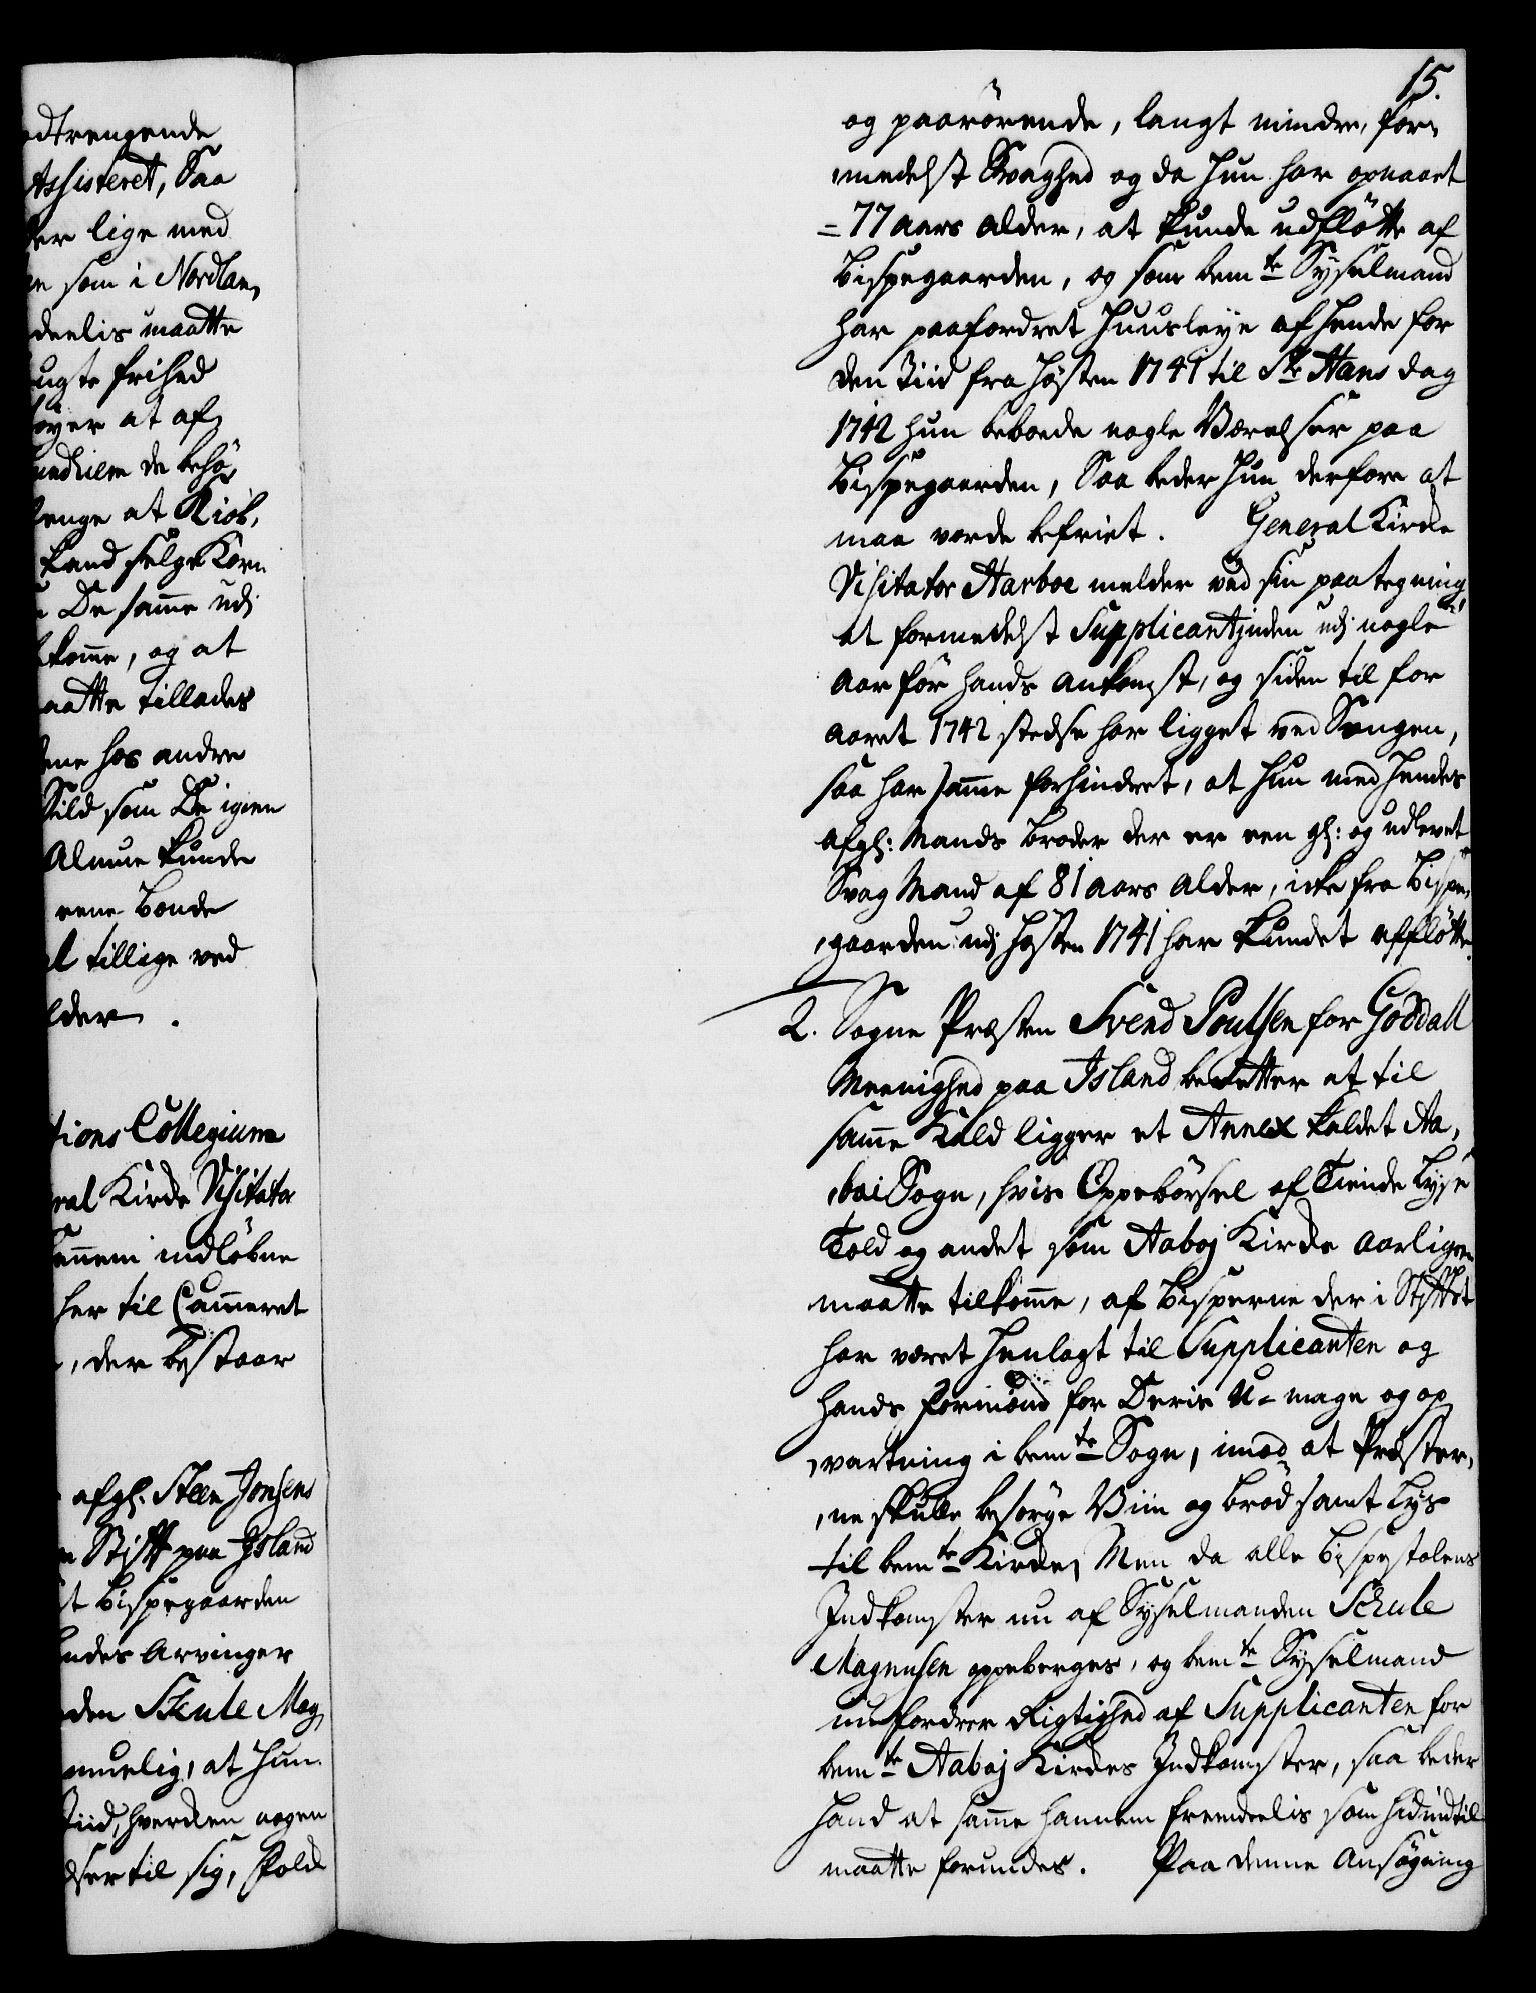 odtrengende
Assisteret, Saa
er lige med
som i Nordlan,
deelis maatte
ugte frihed
øyer at af,
undhiem de behø,
enge at Kiøb,
kand selge Korn
De samme udj
komme, og at
aatte tillades
ene hos andre
Sild som De igien
Almue kunde
eene Bonde
l tillige ved
lder.
tions Collegium
ral Kirche Visitator
annem indløbne
her til Cammeret
, der bestaar
afgl: Steen Jonsens
Stift paa Jsland
t Bispegaarden
ndes Arvinger
den Schule Mag,
muelig, at Hun
Tiid, hverken nogen
dser til sig, skold
15.
og paarørende, langt mindre, for,
,medelst Svaghed og da Hun har opnaaet
=77 aars alder, at kunde udfløtte af
Bispegaarden, og som bemte Sysselmand
har paafordret Huusleye af Hende for
den Tiid fra Høsten 1741 til Ste Hans dag
1742 hun beboede nogle Værelser paa
Bispegaarden, Saa beder Hun derfore at
maa vorde befriet. General Kirche
Visitator Harboe melder ved sin paategning
at formedelst Supplicantinden udj nogle
Aar før hands ankomst, og siden til for
Aaret 1742 stedse har ligget ved Sengen,
saa har samme forhindret, at hun med Hendes
afgl: Mands Broder der er een gl: og udlevet
Svag Mand af 81 aars Alder, icke fra Bispe,
,gaarden udj Høsten 1741 har kundet affløtte.
2. Sogne Præsten Svend Poulsen for Goddall
Meenighed paa Jsland beretter at til
samme Kald ligger et Annex kaldet Aa,
,bai Sogn, hvis Oppebørsel af Tiende Lyse
Told og andet som Aaboj Kirche Aarligen
maatte tilkomme, af Bisperne der i Stiftet
har været Henlagt til Supplicanten og
hands formænd for Deris U-mage og op,
,vartning i bemte Sogn, imod at Præster,
,ne skulle besørge Viin og brød samt Lys
til bemte Kirche, Men da alle Bispestolens
Jndkomster nu af Sysselmanden Schule
Magnusen oppeberges, og bemte Sysselmand
nu fordrer Rigtighed af Supplicanten for
bemte Aaboj Kirches Jndkomster, saa beder
Hand at samme hannem fremdeelis som hidindtil
maatte forundes. Paa denne Ansøgning